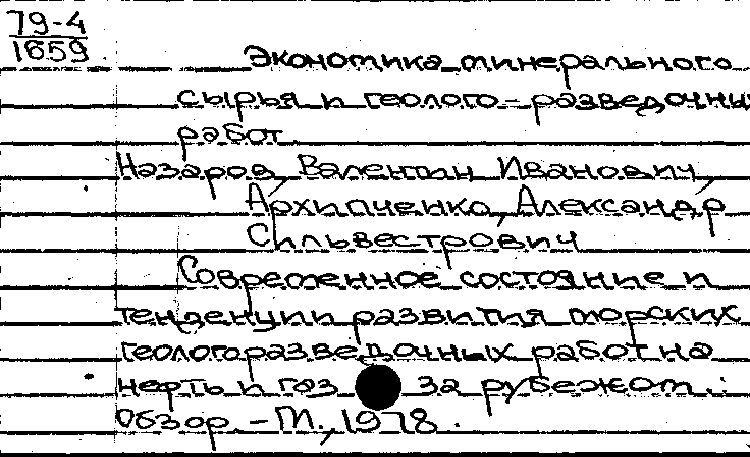 79-4
1659
Экономика минерального
сырья и геолого-разведочных
работ.
Назаров, Валентин Иванович,
Архипченко, Александр
Сильвестрович
Современное состояние и
тенденции развития морских
геологоразведочных работ на
нефть и газ за рубежом.:
Обзор. - М., 1978.